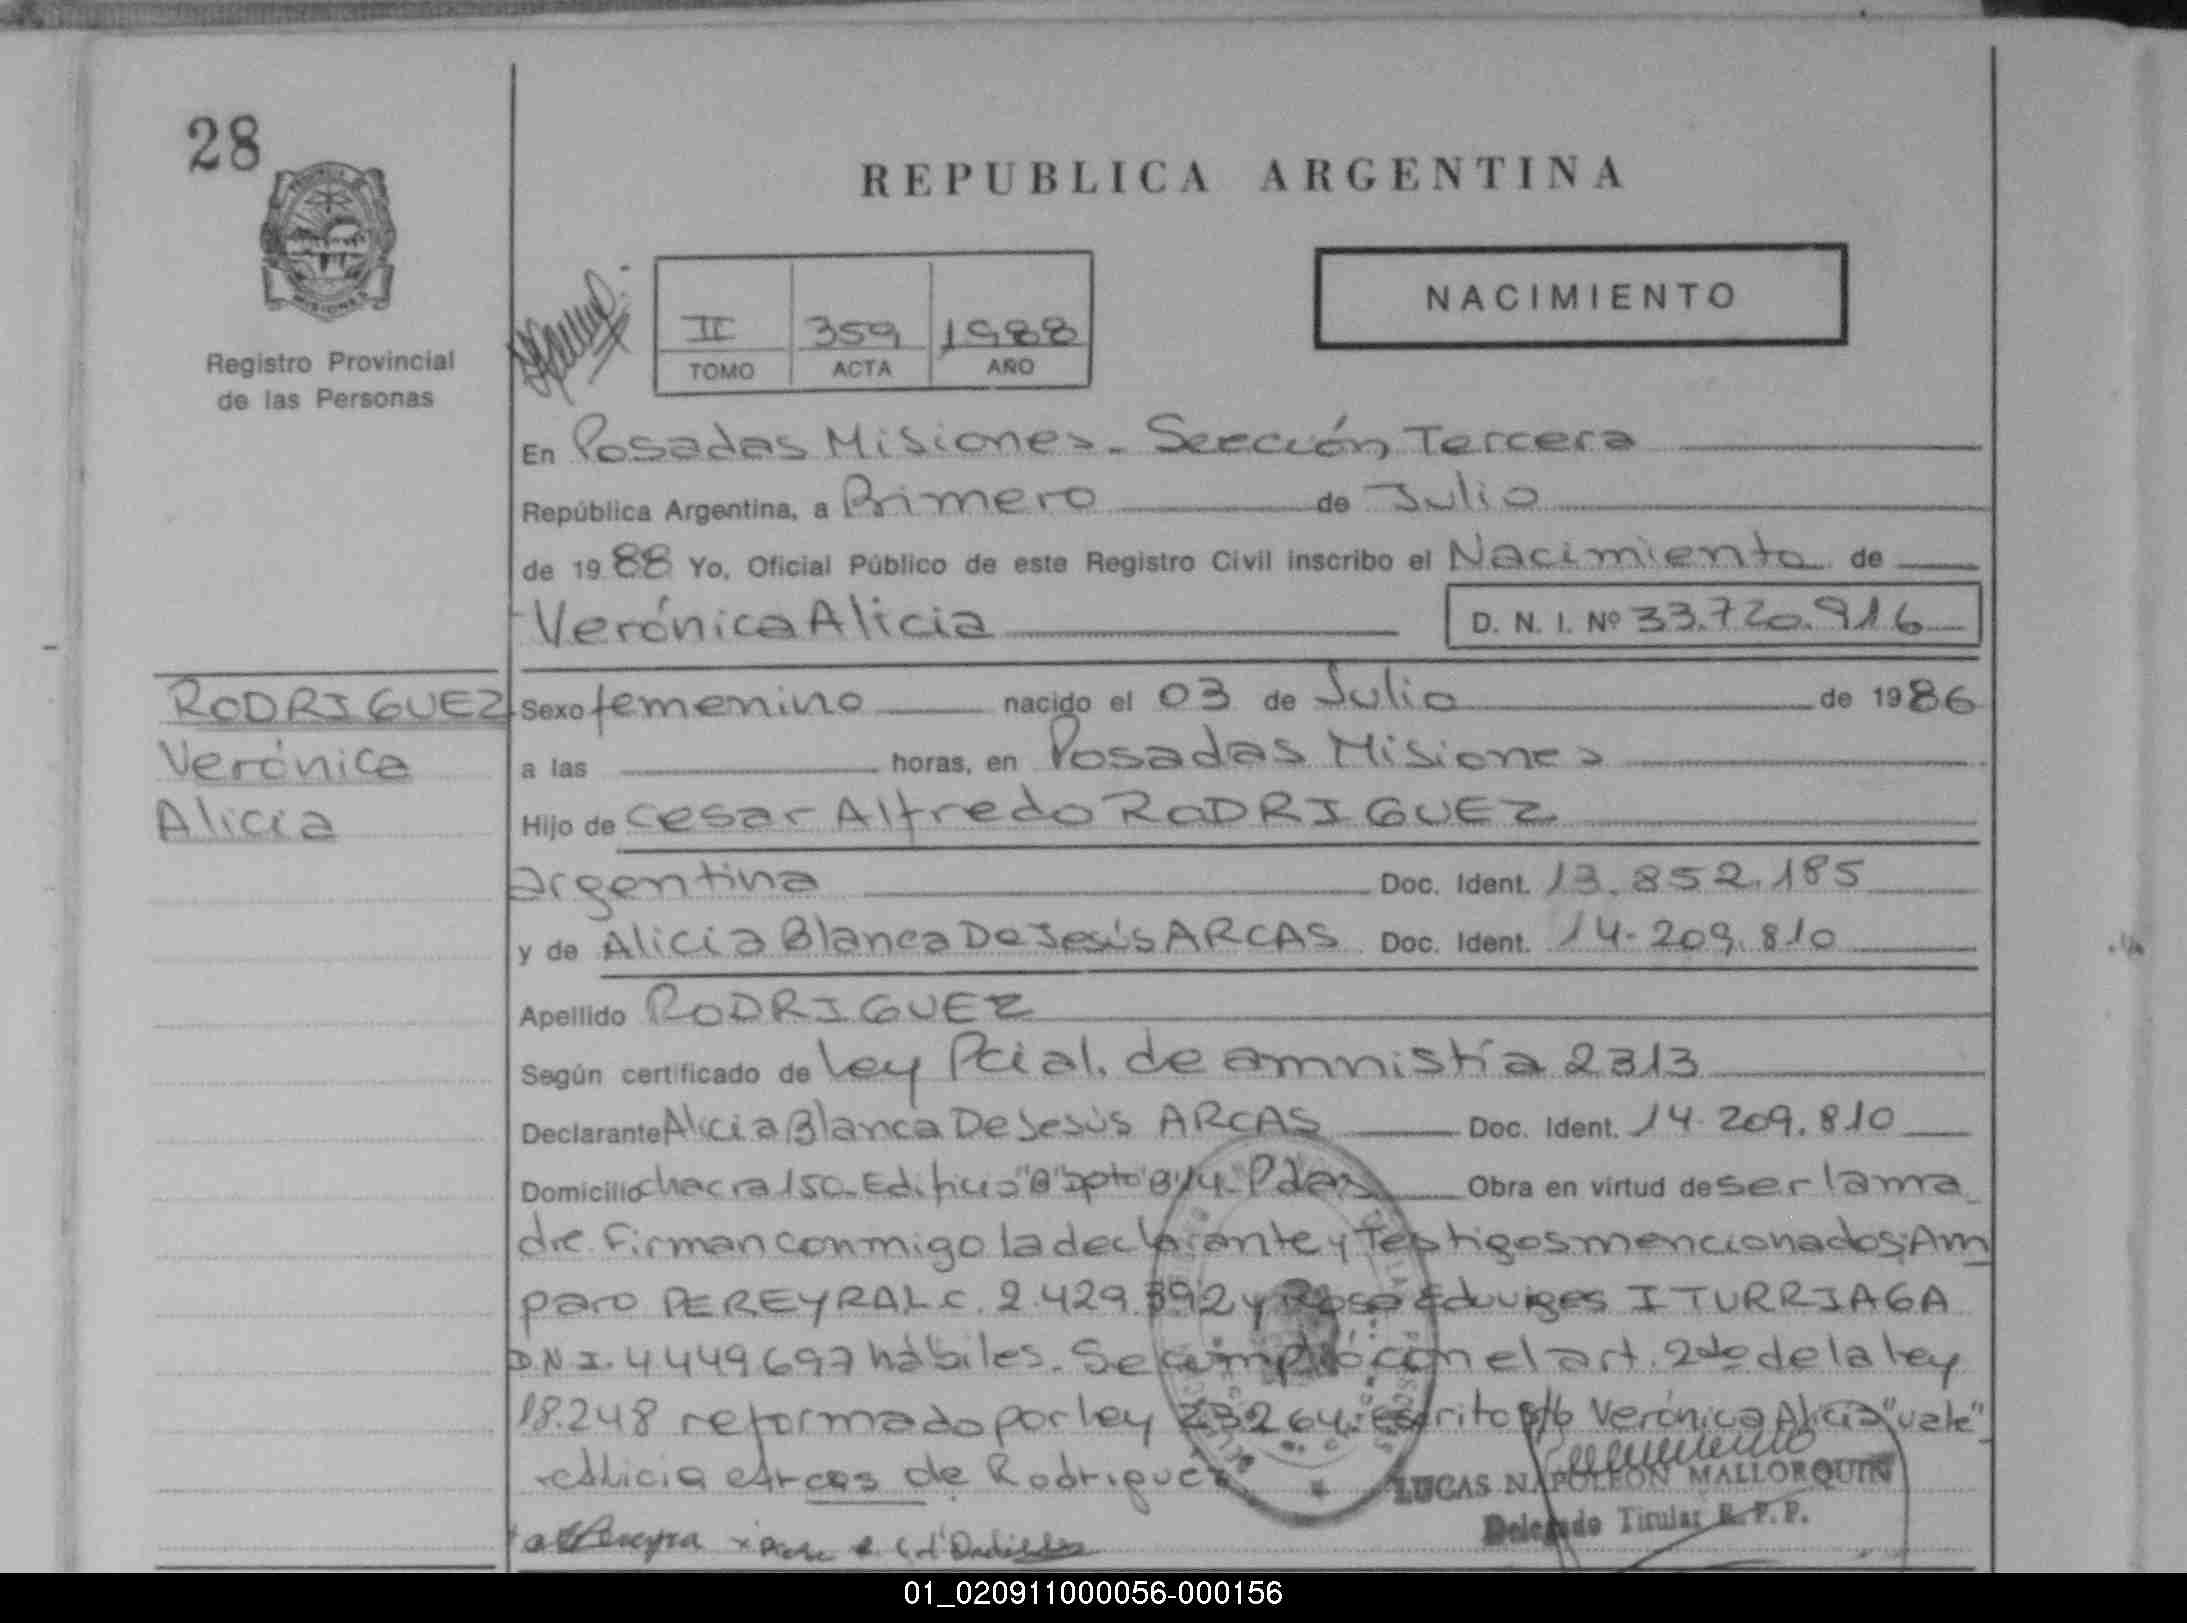 28
REPUBLICA ARGENTINA
NACIMIENTO
II 359 1988
TOMO ACTA AÑO
MISIONES
Registro Provincial
de las Personas
En Posadas Misiones - Sección Tercera
República Argentina, a Primero de Julio
de 1988 Yo, Oficial Público de este Registro Civil inscribo el Nacimiento de
Verónica Alicia D. N. I. Nº 33.720.916
RODRIGUEZ
Verónica
Alicia
Sexo femenino nacido el 03 de Julio de 1986
a las horas, en Posadas Misiones
Hijo de Cesar Alfredo RODRIGUEZ
argentina Doc. Ident. 13.852.185
y de Alicia Blanca De Jesús ARCAS Doc. Ident. 14.209.810
Apellido RODRIGUEZ
Según certificado de Ley Pcial. de amnistía 2313
Declarante Alicia Blanca De Jesús ARCAS Doc. Ident. 14.209.810
Domicilio chacra 150 - Edificio "B" Dpto 8/4 - Pdas Obra en virtud de ser la ma
dre. Firman conmigo la declarante y Testigos mencionados; Am
paro PEREYRA L.C. 2.429.392 y Rosa Eduviges ITURRIAGA
D.N.I. 4449697 hábiles. Se cumplió con el art. 2do de la ley
18.248 reformado por ley 23264. Escrito s/b Verónica Alicia "vale"
Alicia Arcas de Rodriguez
LUCAS NAPOLEON MALLORQUIN
Delegado Titular R. P. P.
Pereyra
01_020911000056-000156